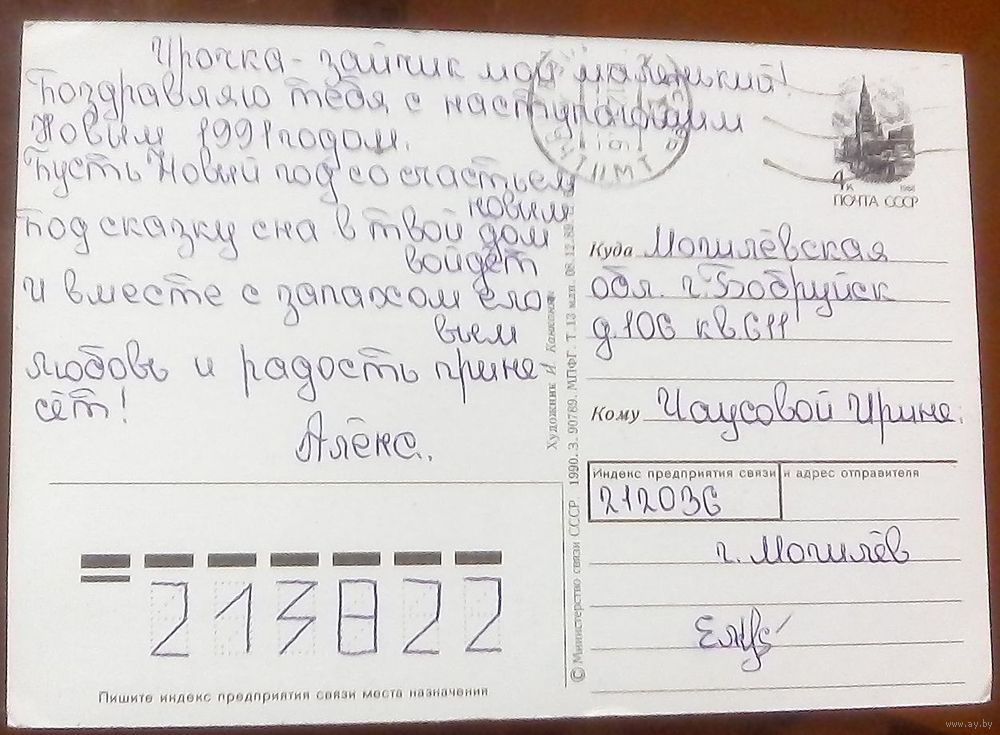 Ирочка - зайчик мой маленький!
Поздравляю тебя с наступающим
Новым 1991 годом.
Пусть Новый год со счастьем
новым
Под сказку сна в твой дом
войдёт
и вместе с запахом ело-
вым
любовь и радость прине-
сёт!
Алёкс.
4к
1988
ПОЧТА СССР
Куда Могилёвская
обл. г. Бобруйск
д.106 кв.611
Кому Чаусовой Ирине.
Индекс предприятия связи и адрес отправителя
212036
г. Могилёв
213822
Пишите индекс предприятия связи места назначения
Художник И.
© Министерство связи СССР. 1990. З. 90789. МПФГ. Т. 13 млн. 08.12.89.
www.ay.by